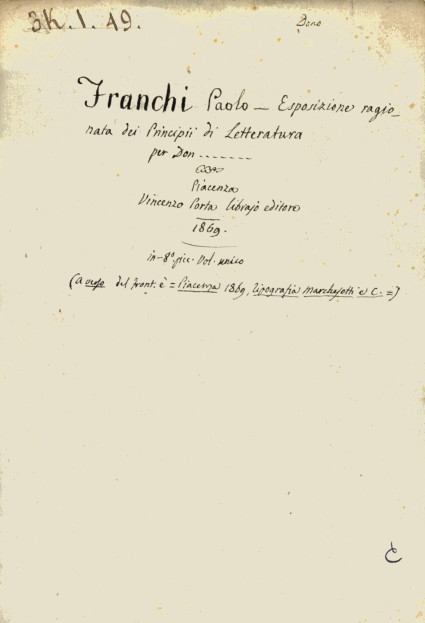 3K.1.49. Dono
Franchi Paolo — Esposizione ragio-
nata dei Principii di Letteratura
per Don .......
Piacenza
Vincenzo Porta librajo editore
1869.
in-8º. picc. Vol. unico
(a verso del front. è = Piacenza 1869, tipografia Marchesotti e C. =)
C